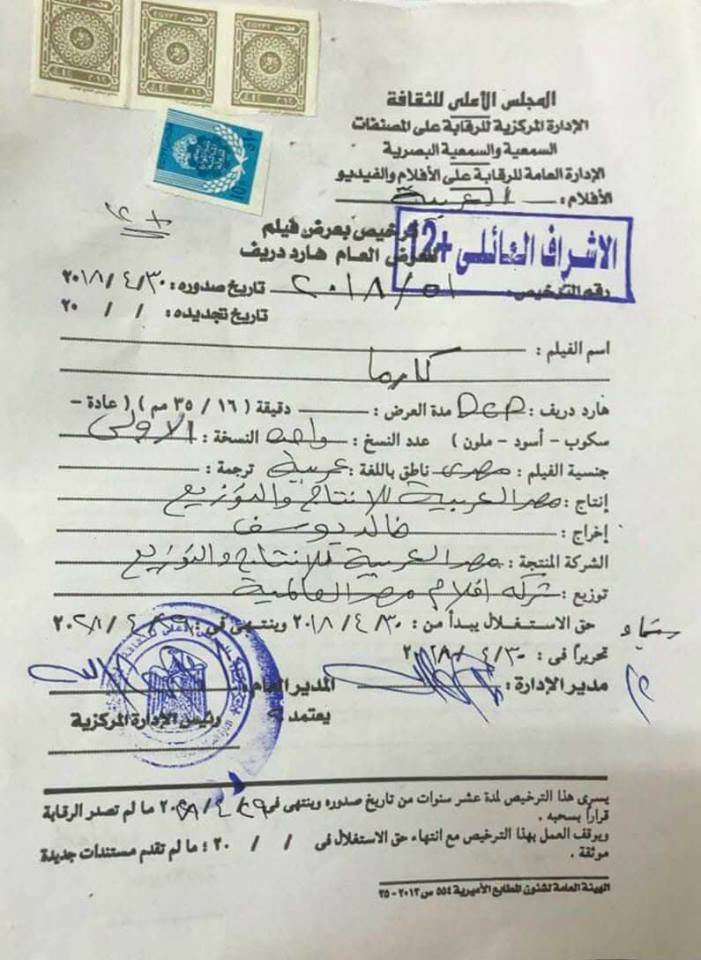 المجلس الأعلى للثقافة
الإدارة المركزية للرقابة على المصنفات
السمعية والسمعية البصرية
الإدارة العامة للرقابة على الأفلام والفيديو
الأفلام : العربية
ترخيص بعرض فيلم
للعرض العام هارد دريف
الاشراف العائلى +12
+١٢
رقم الترخيص : ٥١ / ٢٠١٨ تاريخ صدوره : ٣٠ / ٤ / ٢٠١٨
تاريخ تجديده : / / ٢٠
اسم الفيلم :
كارما
هارد دريف : DCP مدة العرض : دقيقة ( ١٦ / ٣٥ مم ) ( عادة -
سكوب - أسود - ملون ) عدد النسخ : واحد النسخة : الأولى
جنسية الفيلم : مصرى ناطق باللغة : عربية ترجمة :
إنتاج : مصر العربية للانتاج والتوزيع
إخراج : خالد يوسف
الشركة المنتجة : مصر العربية للإنتاج والتوزيع
توزيع : شركه افلام مصر العالمية
حق الاستغلال يبدأ من : ٣٠ / ٤ / ٢٠١٨ وينتهى فى : ٢٩ / ٤ / ٢٠٢٨
تحريراً فى : ٣٠ / ٤ /
مدير الإدارة : المدير العام :
يعتمد ،
رئيس الإدارة المركزية
يسرى هذا الترخيص لمدة عشر سنوات من تاريخ صدوره وينتهى فى ٢٩ / ٤ / ٢٠٢٨ ما لم تصدر الرقابة
قراراً بسحبه .
ويوقف العمل بهذا الترخيص مع انتهاء حق الاستغلال فى / / ٢٠ ؛ ما لم تقدم مستندات جديدة
موثقة .
الهيئة العامة لشئون المطابع الأميرية ٥٥٤ س ٢٠١٣ - ٢٥